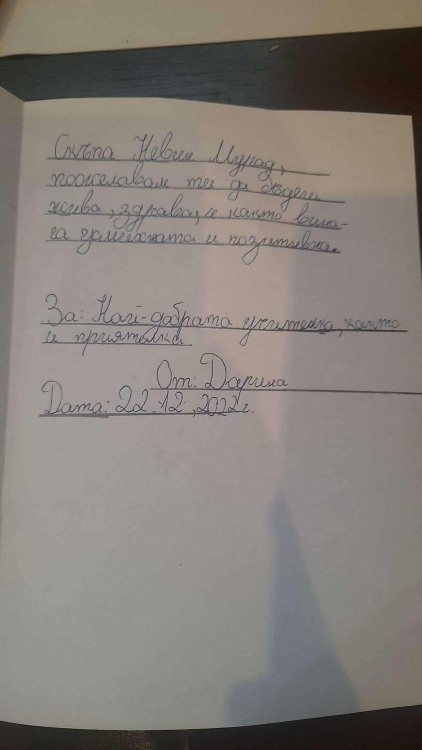 Скъпа Невин Мурад,
пожелавам ти да бъдеш
жива, здрава, и както вина-
га усмихната и позитивна.
За: Най-добрата учителка, както
и приятелка
От: Дарина
Дата: 22.12.2022г.